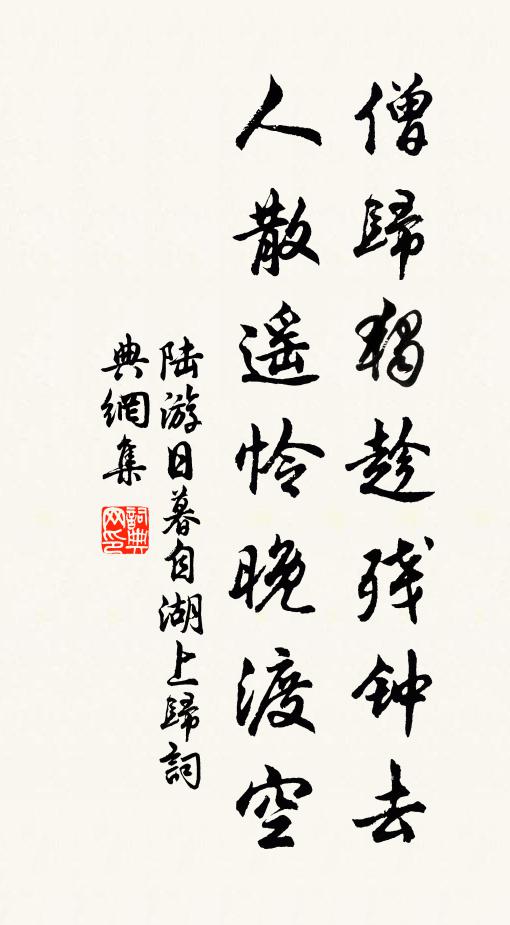 僧歸獨趁残钟去
人散遥怜晚渡空
陆游日暮自湖上歸詞
典網集
詞典
网印